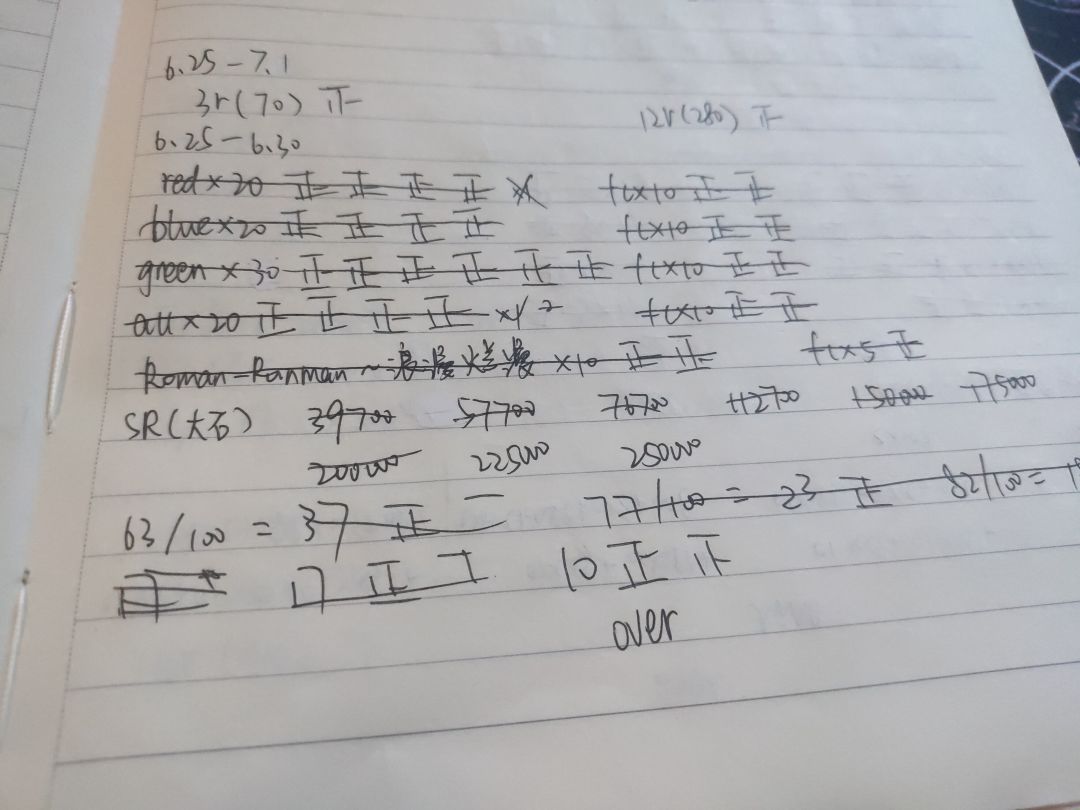 6.25-7.1
3r(70) 正 12r(280) 正
6.25-6.30
red×20 正 正 正 正 fc×10 正 正
blue×20 正 正 正 正 fc×10 正 正
green×30 正 正 正 正 正 正 fc×10 正 正
all×20 正 正 正 正 fc×10 正 正
Roman-Ranman~浪漫烂漫 ×10 正 正 fc×5 正
SR(大石) 39700 57700 76700 112700 150000 175000
200000 225000 250000
63/100 = 37 正 一 77/100 = 23 正 82/100 =
17 正 10 正 正
over